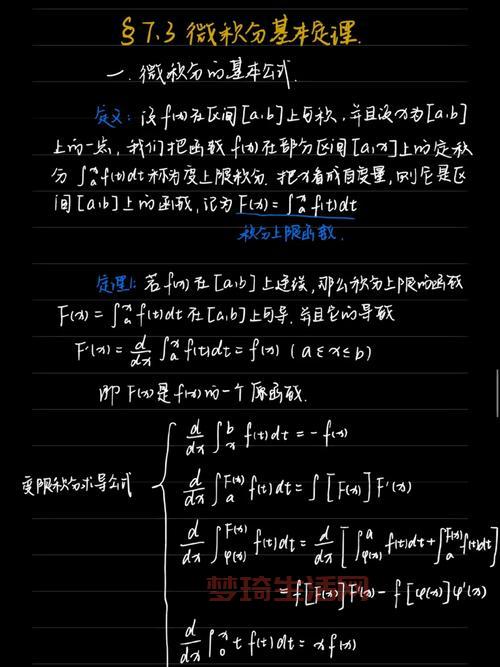 §7.3 微积分基本定理.
一.微积分的基本公式.
定义: 设f(x)在区间[a,b]上可积,并且设x为[a,b]
上的一点,我们把函数f(x)在部分区间[a,x]上的定积
分∫ₐˣ f(t)dt称为变上限积分.把x看成自变量,则它是区
间[a,b]上的函数,记为F(x)=∫ₐˣ f(t)dt
积分上限函数.
定理1: 若f(x)在[a,b]上连续,那么积分上限的函数
F(x)=∫ₐˣ f(t)dt在[a,b]上可导.并且它的导数
F'(x)=d/dx ∫ₐˣ f(t)dt=f(x) (a≤x≤b)
即F(x)是f(x)的一个原函数.
变限积分求导公式
d/dx ∫ₓᵇ f(t)dt=-f(x)
d/dx ∫_a^{F(x)} f(t)dt=∫[F(x)]F'(x)
d/dx ∫_{φ(x)}^{F(x)} f(t)dt=d/dx[∫_{φ(x)}^a f(t)dt+∫_a^{F(x)} f(t)dt]
=f[F(x)]F'(x)-f[φ(x)]φ'(x)
d/dx ∫₀ˣ t f(t)dt=xf(x)
梦琦生活网